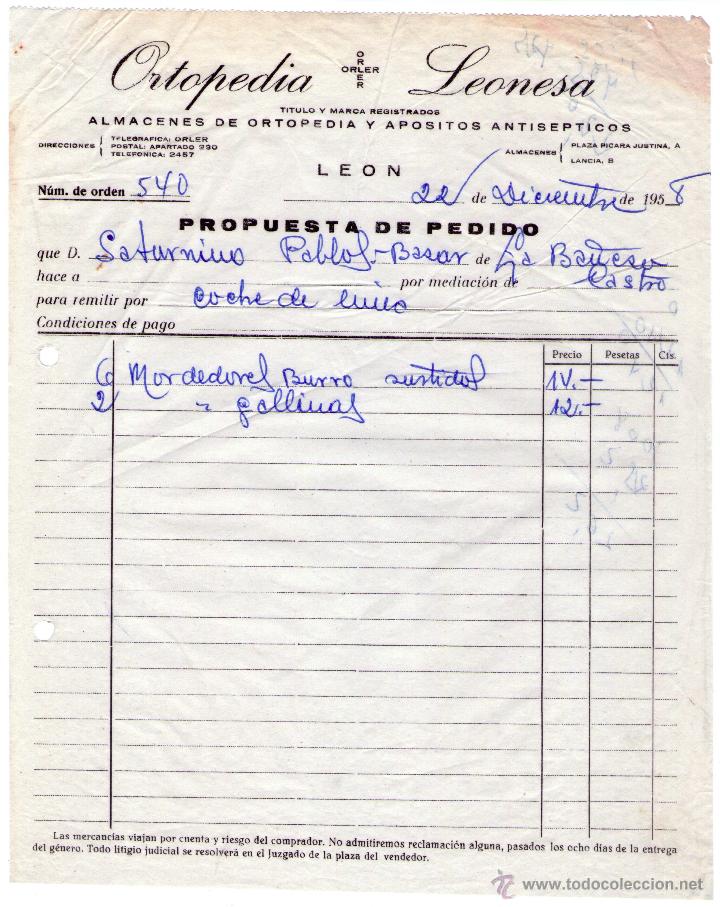 Ortopedia ORLER ORLER Leonesa
TITULO Y MARCA REGISTRADOS
ALMACENES DE ORTOPEDIA Y APOSITOS ANTISEPTICOS
DIRECCIONES
TELEGRAFICA: ORLER
POSTAL: APARTADO 230
TELEFONICA: 2457
ALMACENES
PLAZA PICARA JUSTINA, A
LANCIA, 8
LEON
Núm. de orden 540
22 de Diciembre de 1958
PROPUESTA DE PEDIDO
que D. Saturnino Pablos-Basar de La Bañesa
hace a por mediación de Castro
para remitir por coche de
Condiciones de pago
Precio Pesetas Cts.
6 Mordedores Burro surtidos 14.-
2 " gallinas 12.-
Las mercancías viajan por cuenta y riesgo del comprador. No admitiremos reclamación alguna, pasados los ocho días de la entrega
del género. Todo litigio judicial se resolverá en el Juzgado de la plaza del vendedor.
www.todocoleccion.net